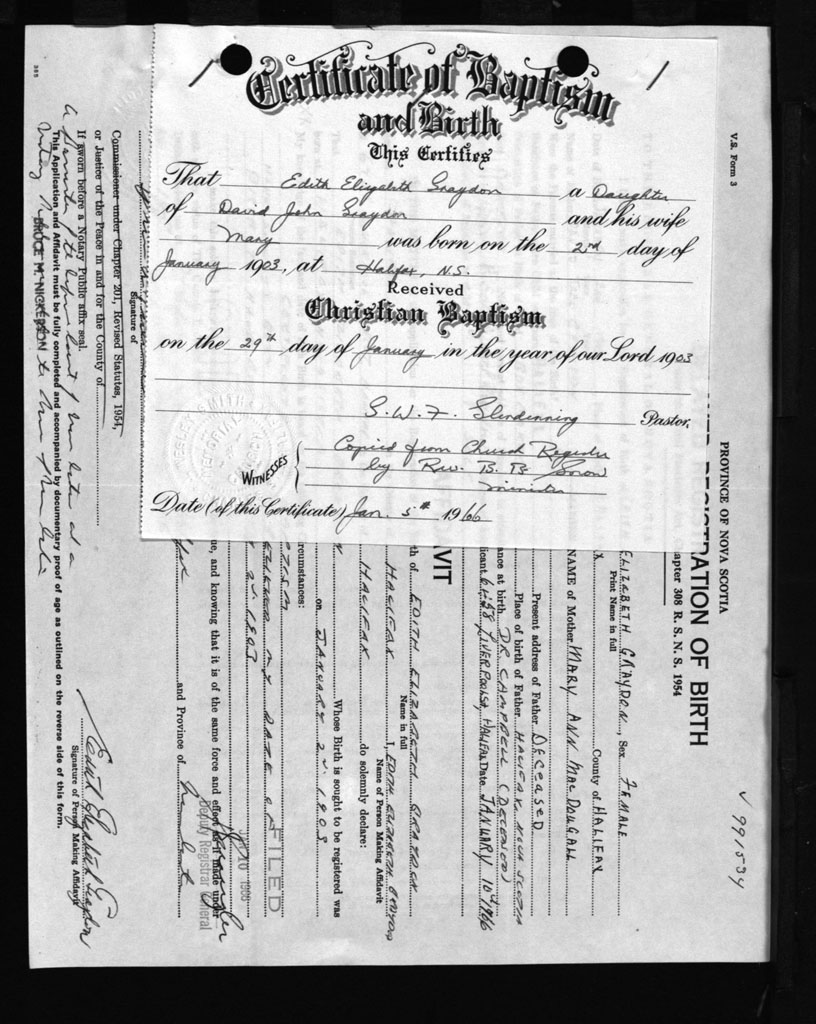 Certificate of Baptism
and Birth
This Certifies
That Edith Elizabeth Graydon a Daughter
of David John Graydon and his wife
Mary was born on the 2nd day of
January 1903, at Halifax, N.S.
Received
Christian Baptism
on the 29th day of January in the year of our Lord 1903
Pastor,
WITNESSES
Copied from Church Register
by Rev. B. B. Snow
minister
Date (of this Certificate) Jan. 5th 1966
V.S. Form 3
PROVINCE OF NOVA SCOTIA
RATION OF BIRTH
apter 308 R. S. N. S. 1954
ELIZABETH GRAYDON, Sex FEMALE
Print Name in full
X County of HALIFAX
NAME of Mother MARY ANN MACDOUGALL
Present address of Father DECEASED
Place of birth of Father HALIFAX NOVA SCOTIA
ance at birth DR CAMPBELL (DECEASED)
icant 6458 LIVERPOOL ST, HALIFAX Date JANUARY 10th 1966
VIT
th of EDITH ELIZABETH GRAYDON
Name in full
HALIFAX I, EDITH ELIZABETH GRAYDON
Name of Person Making Affidavit
HALIFAX do solemnly declare:
Whose Birth is sought to be registered was
on JANUARY 2nd 1903
ircumstances:
FILED
JAN 10 1966
Deputy Registrar General
ue, and knowing that it is of the same force and effect as if made under
and Province of
Edith Elizabeth Graydon
Signature of Person Making Affidavit
Signature of
Commissioner under Chapter 201, Revised Statutes, 1954,
or Justice of the Peace in and for the County of
If sworn before a Notary Public affix seal.
This Application and Affidavit must be fully completed and accompanied by documentary proof of age as outlined on the reverse side of this form.
BRUCE M. NICKERSON
991534